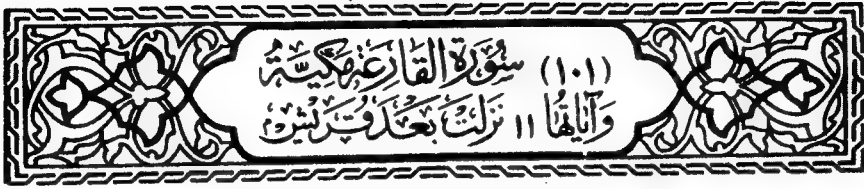 (١٠١) سُورَة القَارِعَة مَكِّيَّة
وَآيَاتُهَا ١١ نَزَلَتْ بَعْدَ قُرَيْش